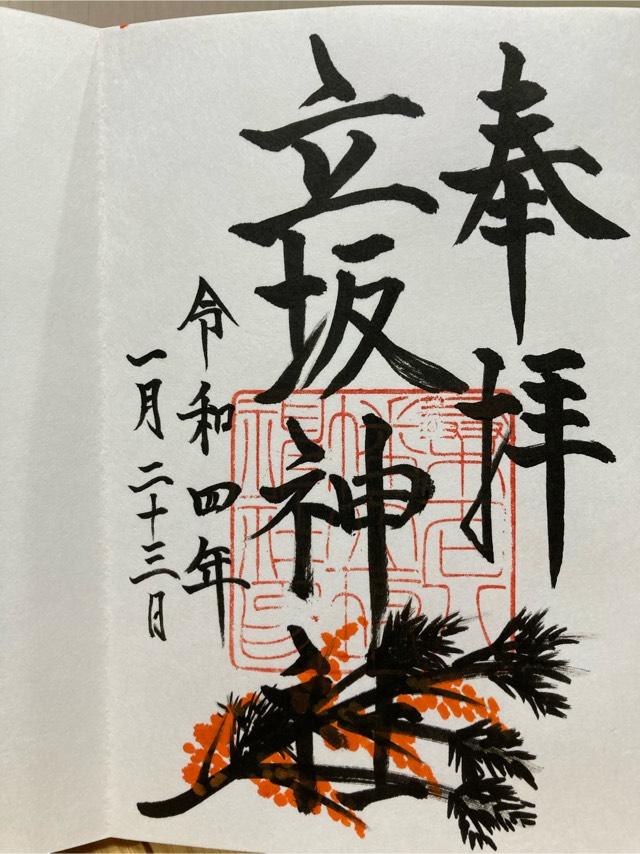 奉拝
立坂神社
令和四年
一月二十三日